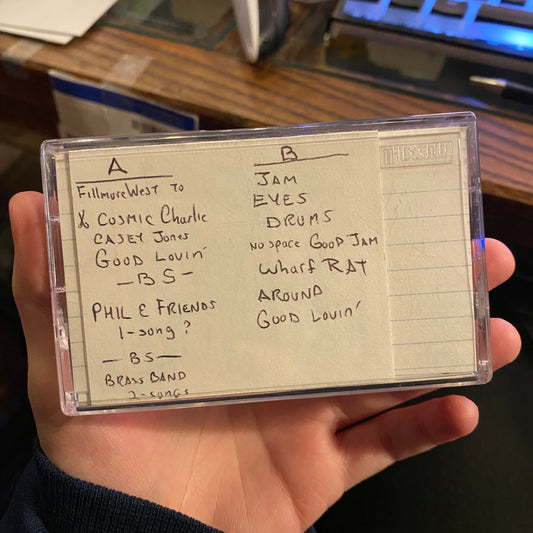 A
Fillmore West 70
% Cosmic Charlie
CASEY Jones
Good Lovin'
— B S —
PHIL & FRIENDS
1-song ?
— B S —
BRASS BAND
2-songs
B
JAM
EYES
DRUMS
NO SPACE GOOD JAM
Wharf RAT
AROUND
GOOD LOVIN'